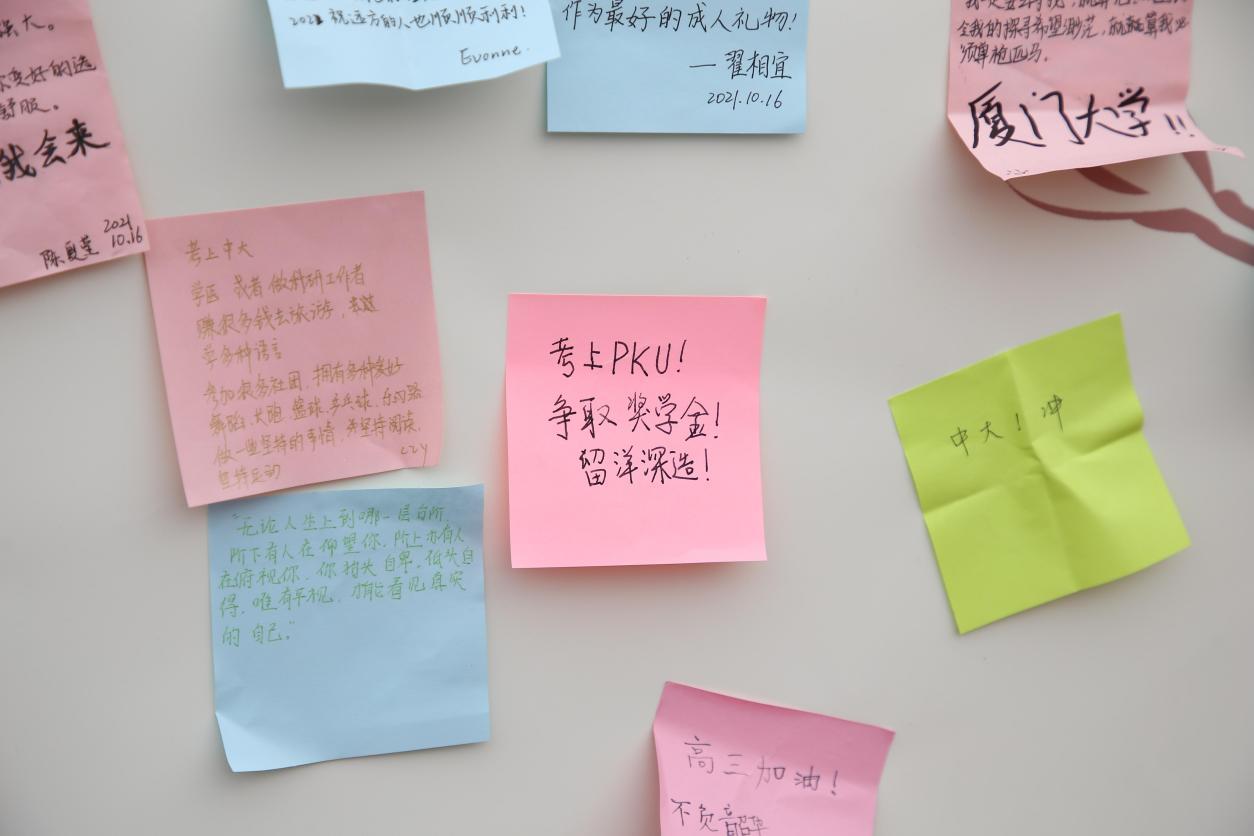 强大。
你变好的选
舒服。
我会来
2021
10.16
陈夏莹
2021 祝远方的人也顺顺利利！
Evonne.
作为最好的成人礼物！
— 翟相宜
2021.10.16
全我的探寻希望渺茫，就算我必
须单枪匹马。
厦门大学!!
考上中大
学医 或者做科研工作者
赚很多钱去旅游，去
学多种语言
参加很多社团，拥有多种爱好
舞蹈，大跑，篮球，乒乓球，乐
做一些坚持的事情，希坚持阅读，
坚持运动
czy
考上PKU!
争取奖学金!
留洋深造!
中大！冲
“无论人生上到哪一层台阶，
阶下有人在仰望你，阶上亦有人
在俯视你，你抬头自卑，低头自
得，唯有平视，才能看见真实
的自己。”
高三加油！
不负韶华